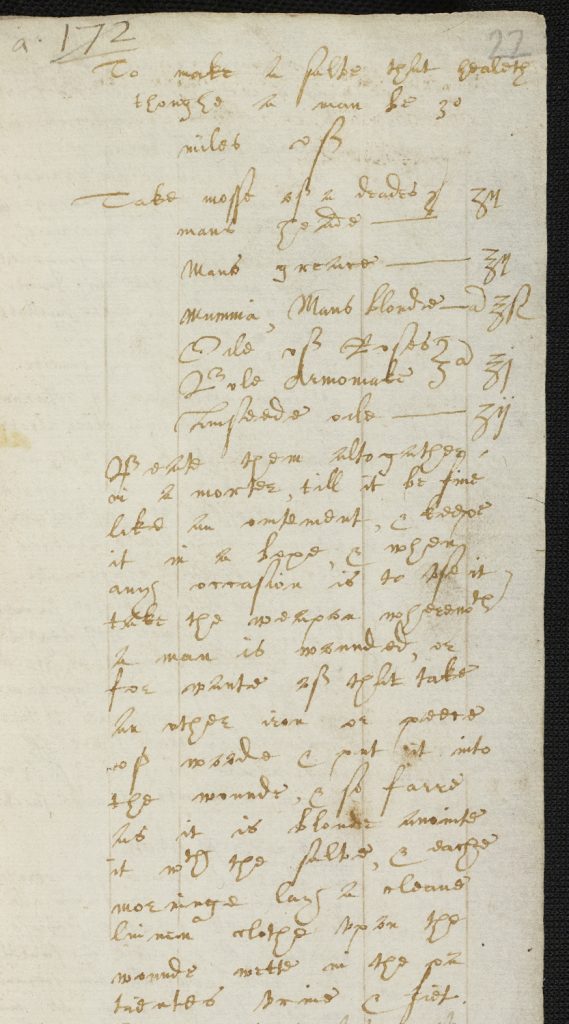 a. 172
22
To make a salve that healeth
thoughe a man be 30
miles off
Take mosse off a deades
mans heade — ℥ij
Mans greace — ℥ij
Mummia, Mans bloude — a ℥ß
Oile off Roses
Bole Armoniake } a ℥j
Linseede oile — ℥ij
Beate them altogather
in a morter, till it be fine
like an ointement, & keepe
it in a boxe, & when
any occasion is to use it
take the weapon wherewth
a man is wounded, or
for wante off that take
an other iron or peece
off woode & put it into
the wounde, & so farre
as it is bloude anointe
it wth the salve, & eache
morninge lay a cleane
linnen clothe upon the
wounde wette in the pa
tientes urine &